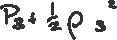 P₂ + ½ ρ s²